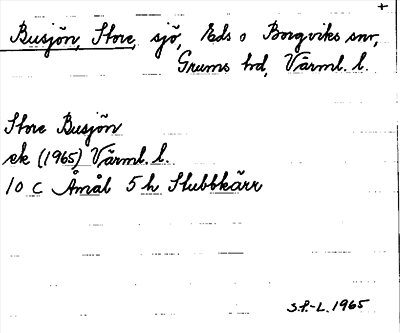 +
Busjön, Store, sjö, Eds o Borgviks snr,
Grums hd, Värml. l.
Store Busjön
ek (1965) Värml. l.
10 C Åmål 5 h Slubbkärr
S.P.-L. 1965